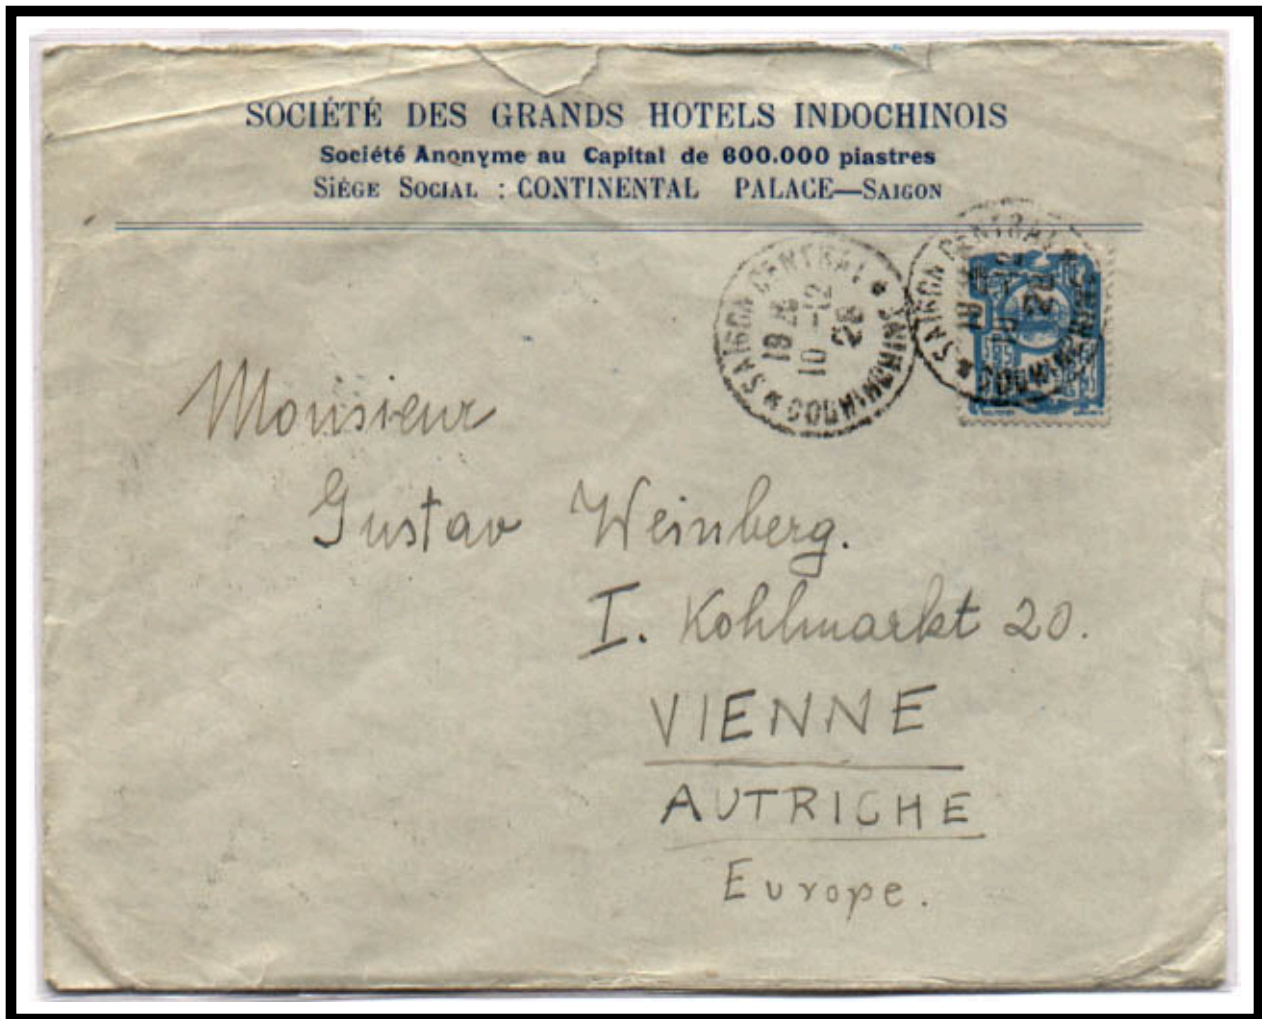 SOCIÉTÉ DES GRANDS HOTELS INDOCHINOIS
Société Anonyme au Capital de 600.000 piastres
SIÈGE SOCIAL : CONTINENTAL PALACE—SAIGON
* SAIGON CENTRAL *
10 -12
28
COCHINCHINE
* SAIGON CENTRAL *
COCHINCHINE
Monsieur
Gustav Weinberg.
I. Kohlmarkt 20.
VIENNE
AUTRICHE
Europe.